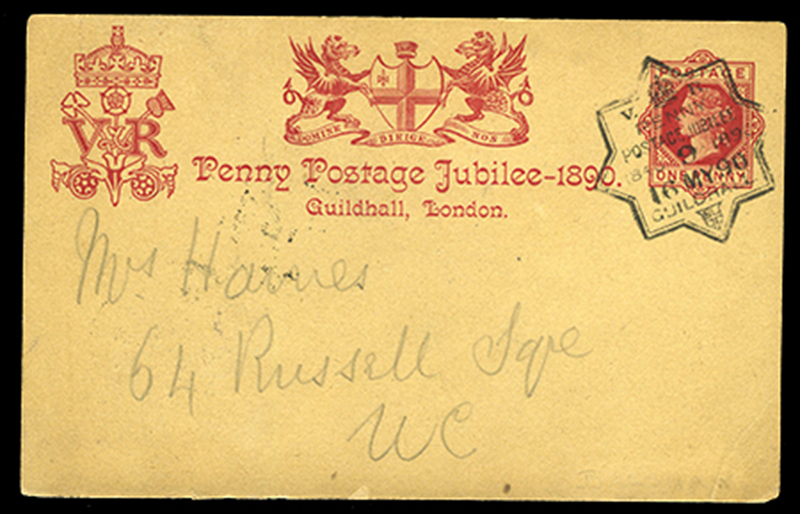 V R
DOMINE DIRIGE NOS
Penny Postage Jubilee-1890.
Guildhall, London.
POSTAGE
ONE PENNY
V. R.
POSTAGE JUBILEE
9
16 MY 90
GUILDHALL
Mrs Haines
64 Russell Sqre
WC